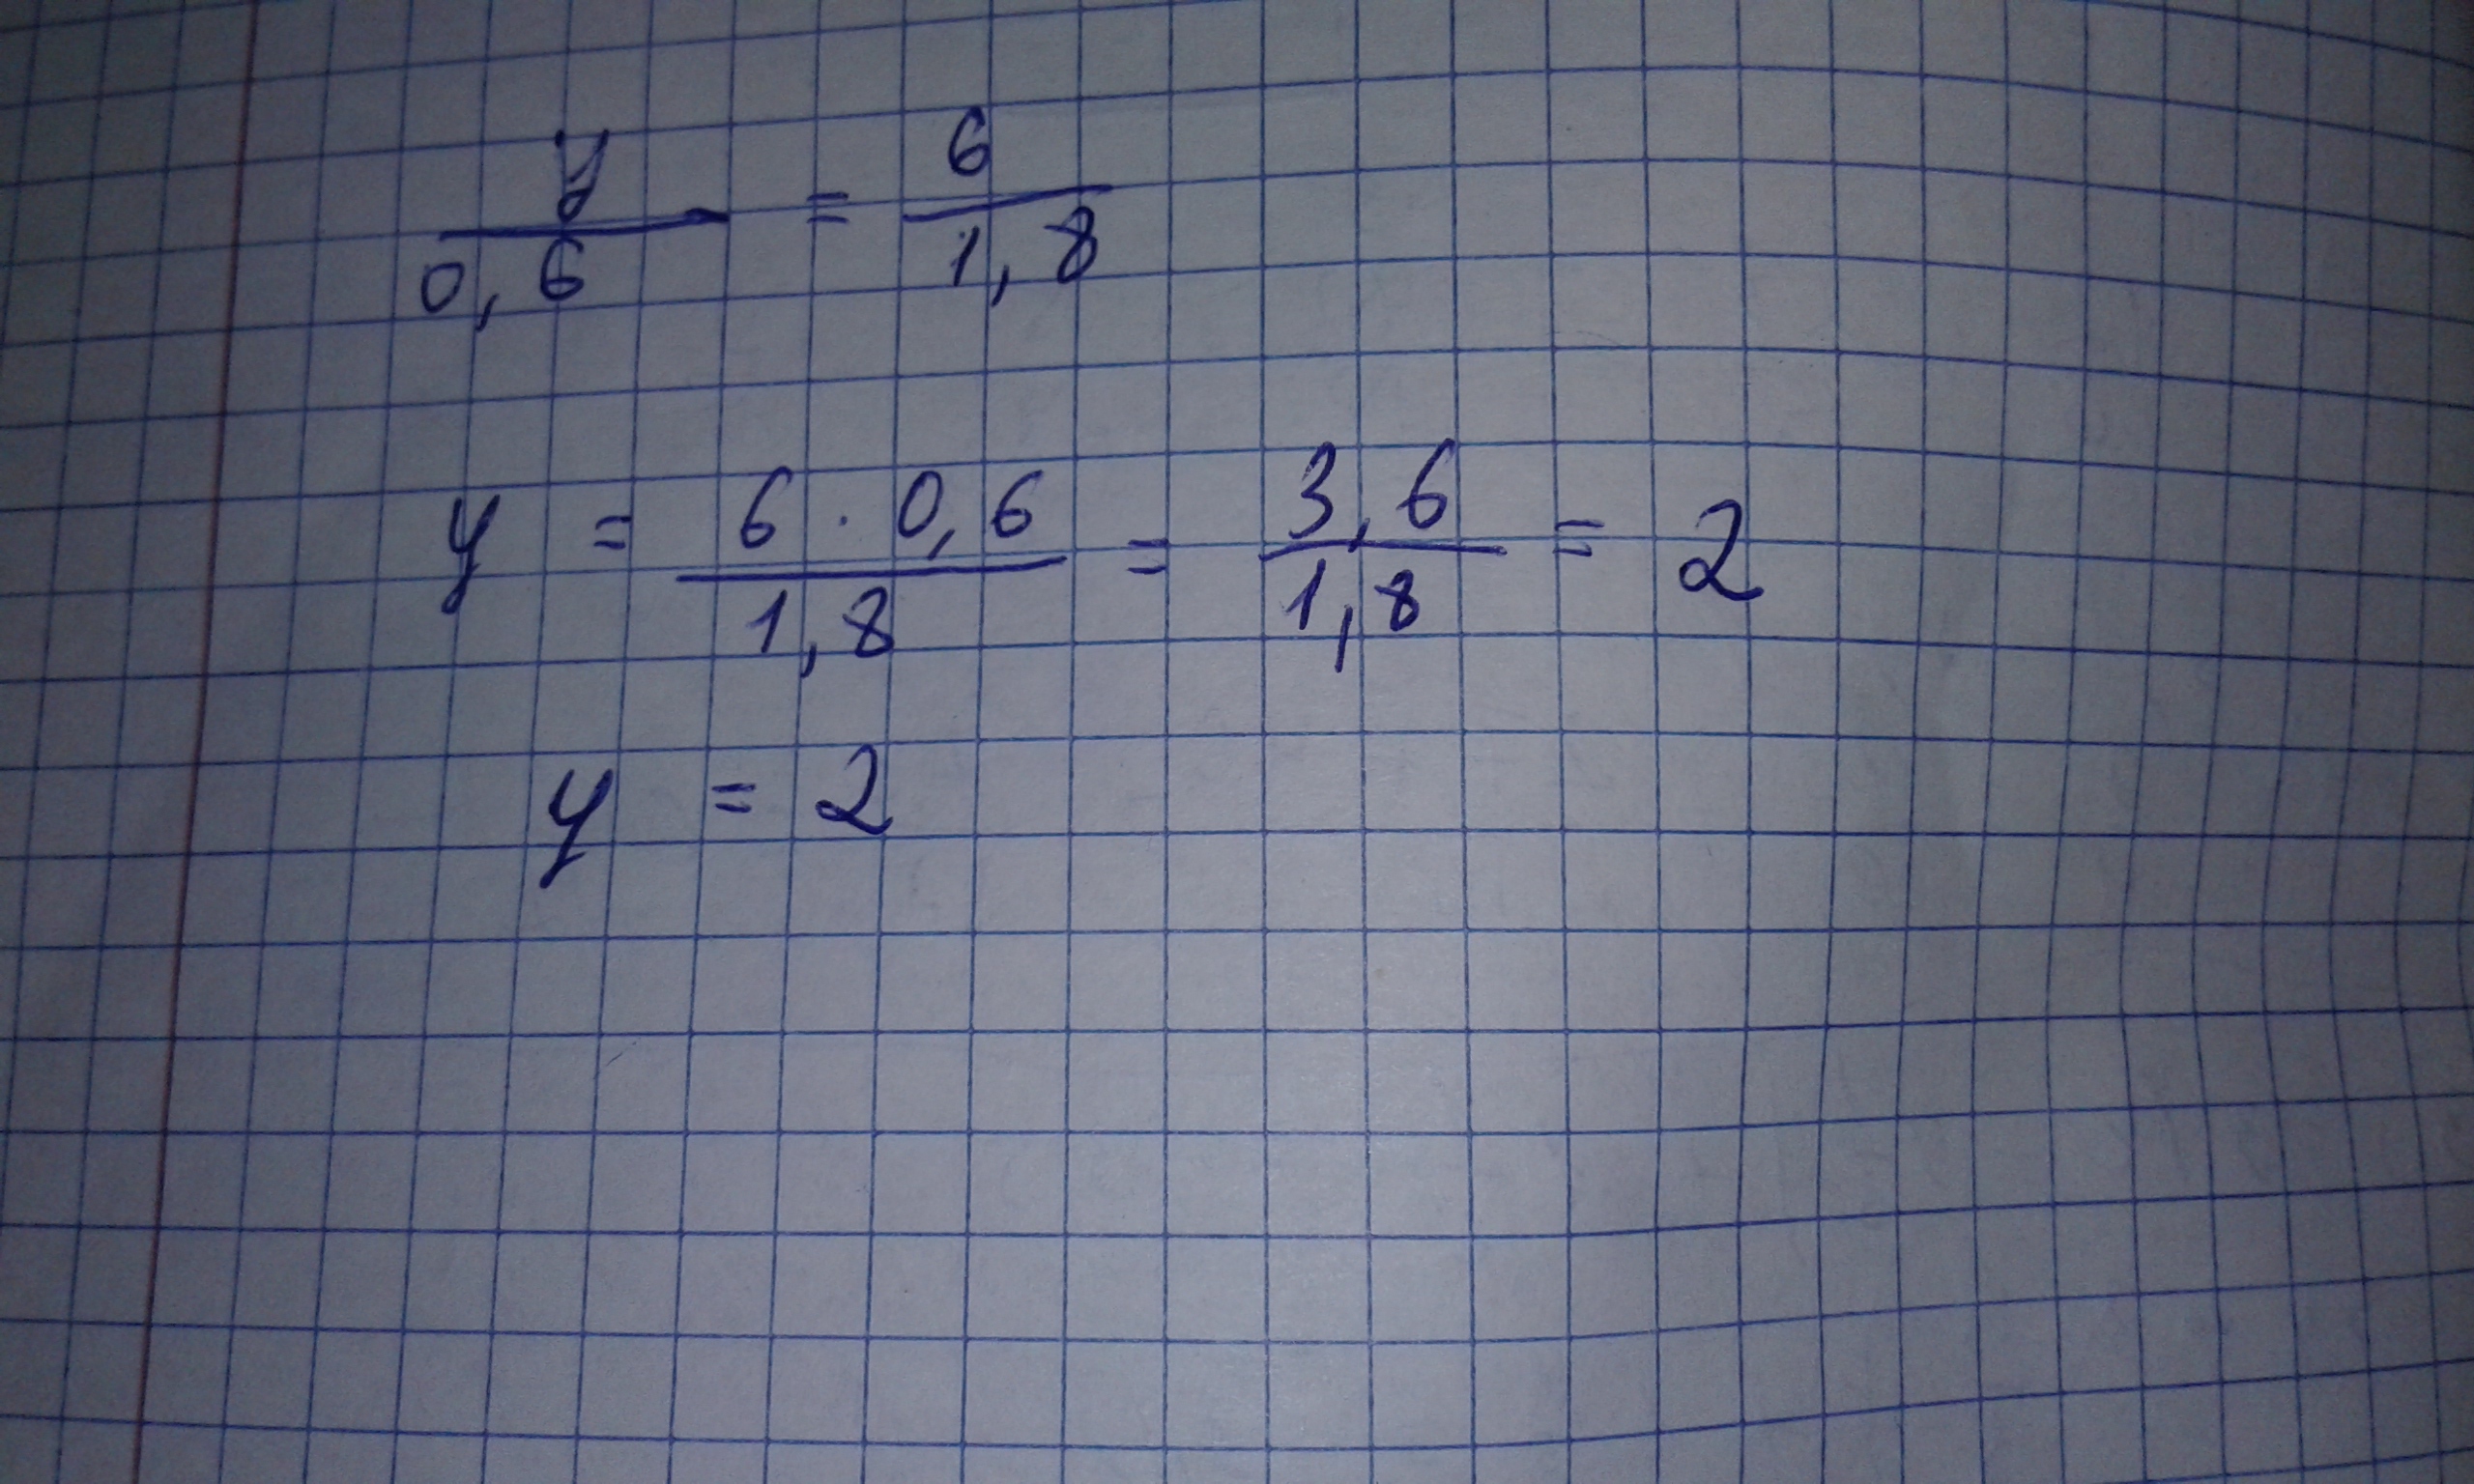 y/0,6 = 6/1,8
y = 6 · 0,6/1,8 = 3,6/1,8 = 2
y = 2